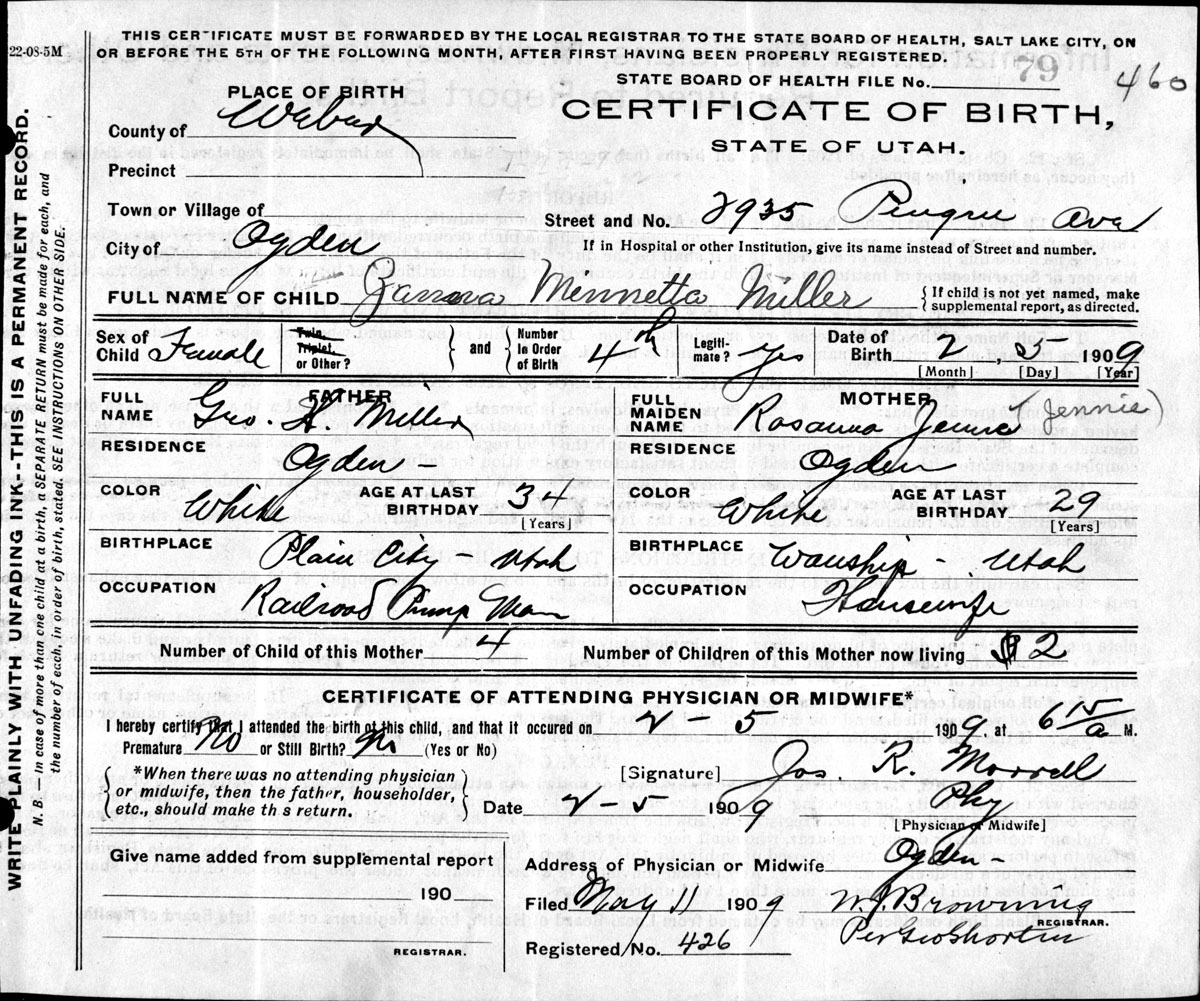 22-08-5M
THIS CERTIFICATE MUST BE FORWARDED BY THE LOCAL REGISTRAR TO THE STATE BOARD OF HEALTH, SALT LAKE CITY, ON
OR BEFORE THE 5TH OF THE FOLLOWING MONTH, AFTER FIRST HAVING BEEN PROPERLY REGISTERED.
STATE BOARD OF HEALTH FILE No. 79 460
PLACE OF BIRTH
CERTIFICATE OF BIRTH,
STATE OF UTAH.
County of Weber
Precinct
Town or Village of
Street and No. 2935 Pingree Ave
City of Ogden
If in Hospital or other Institution, give its name instead of Street and number.
FULL NAME OF CHILD Minnetta Miller
{If child is not yet named, make supplemental report, as directed.
Sex of Child Female
Twin, Triplet, or Other?
and
Number In Order of Birth 4th
Legiti-mate? yes
Date of Birth 2, 5 1909
[Month] [Day] [Year]
FATHER
FULL NAME Geo. H. Miller
MOTHER
FULL MAIDEN NAME Rosanna Jennie (Jennie)
RESIDENCE Ogden -
RESIDENCE Ogden -
COLOR White
AGE AT LAST BIRTHDAY 34
[Years]
COLOR White
AGE AT LAST BIRTHDAY 29
[Years]
BIRTHPLACE Plain City Utah
BIRTHPLACE Wanship - Utah
OCCUPATION Railroad Pump Man
OCCUPATION Housewife
Number of Child of this Mother 4
Number of Children of this Mother now living 2
CERTIFICATE OF ATTENDING PHYSICIAN OR MIDWIFE*
I hereby certify that I attended the birth of this child, and that it occured on 2 5 1909 at 6 15/a M.
Premature No or Still Birth? No (Yes or No)
{*When there was no attending physician
or midwife, then the father, householder,
etc., should make th s return.}
[Signature] Jos. R. Morrell
Date 2-5 1909 Phy
[Physician or Midwife]
Give name added from supplemental report
190
REGISTRAR.
Address of Physician or Midwife Ogden -
Filed May 11 1909 W. J. Browning
REGISTRAR.
Registered No. 426 Per Geo Shorten
WRITE PLAINLY WITH UNFADING INK-THIS IS A PERMANENT RECORD.
N. B.—In case of more than one child at a birth, a SEPARATE RETURN must be made for each, and
the number of each, in order of birth, stated. SEE INSTRUCTIONS ON OTHER SIDE.